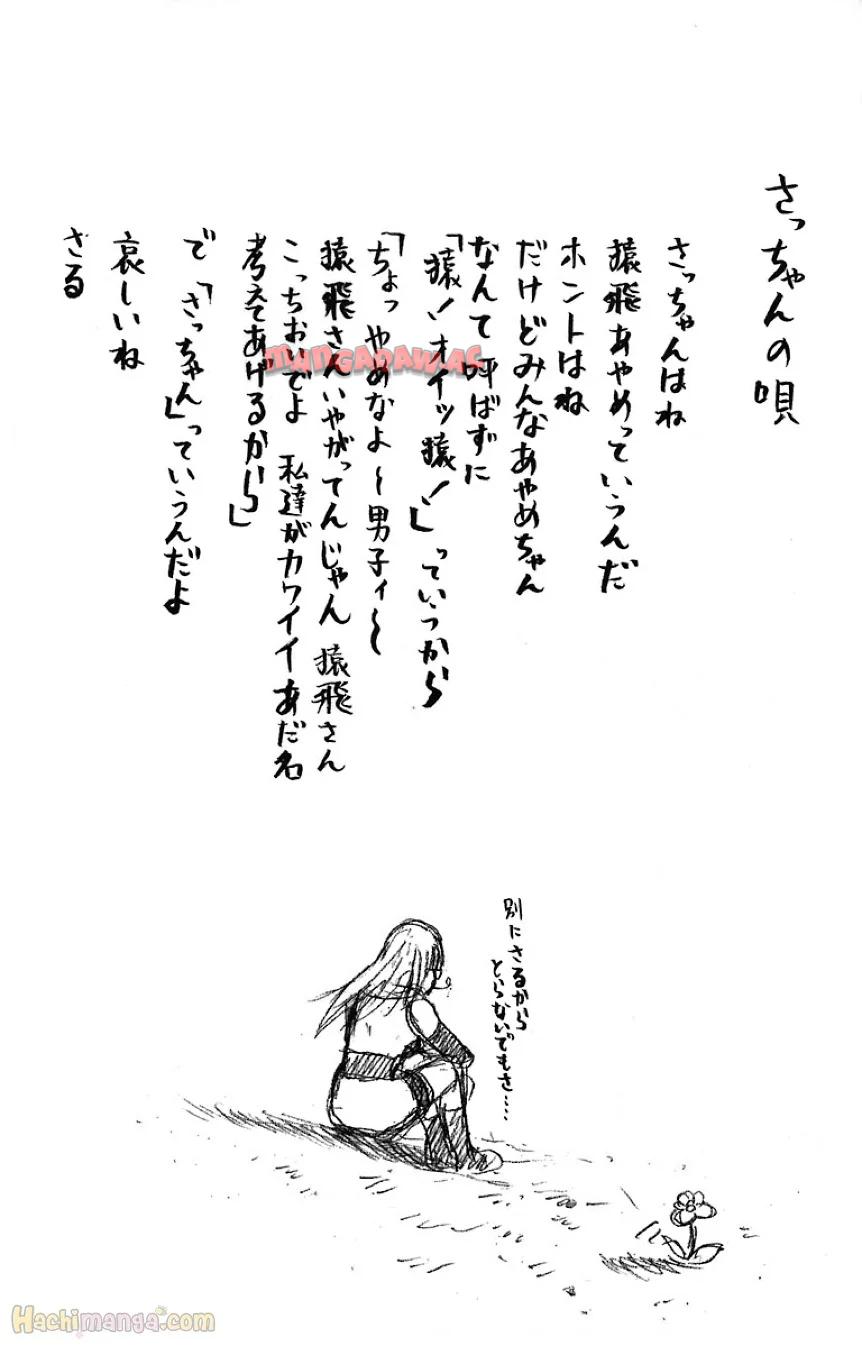 さっちゃんの唄
さっちゃんはね
猿飛あやめっていうんだ
ホントはね
だけどみんなあやめちゃん
なんて呼ばずに
「猿!オイッ猿!」っていうから
「ちょっ やめなよ~男子ィ~
猿飛さんいやがってんじゃん 猿飛さん
こっちおいでよ 私達がカワイイあだ名
考えてあげるから」
で「さっちゃん」っていうんだよ
哀しいね
さる
別にさるから
とらないでもさ…
MANGARAW.AC
Hachimanga.com